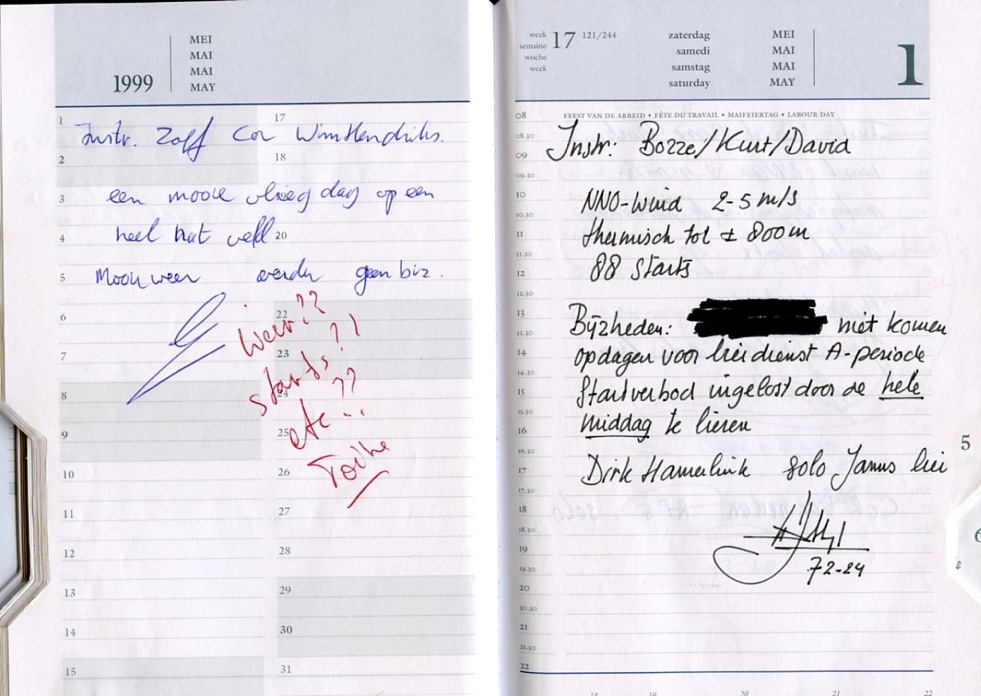 1999
MEI
MAI
MAI
MAY
1
17
Instr. Zoff Cor Wim Hendriks.
2
18
een mooie vliegdag op een
3
heel nat veld
4
20
Mooi weer verder geen biz.
5
6
22
weer??
7
23
starts?!
8
24
etc??
9
25
10
26
11
27
12
28
13
29
14
30
15
31
week
semaine
woche
week
17
121/244
zaterdag
samedi
samstag
saturday
MEI
MAI
MAI
MAY
1
08
FEEST VAN DE ARBEID • FÊTE DU TRAVAIL • MAIFEIERTAG • LABOUR DAY
08.30
Instr: Bozze/Kurt/David
09
09.30
10
NNO-wind 2-5 m/s
10.30
11
thermisch tot ± 800m
11.30
12
88 starts
12.30
13
Bijzheden: niet komen
13.30
14
opdagen voor lierdienst A-periode
14.30
15
Startverbod ingelost door de hele
15.30
16
middag te lieren
16.30
17
Dirk Hamerlink solo Janus lier
17.30
18
18.30
19
72-24
19.30
20
20.30
21
21.30
22
5
6
18
19
20
21
22